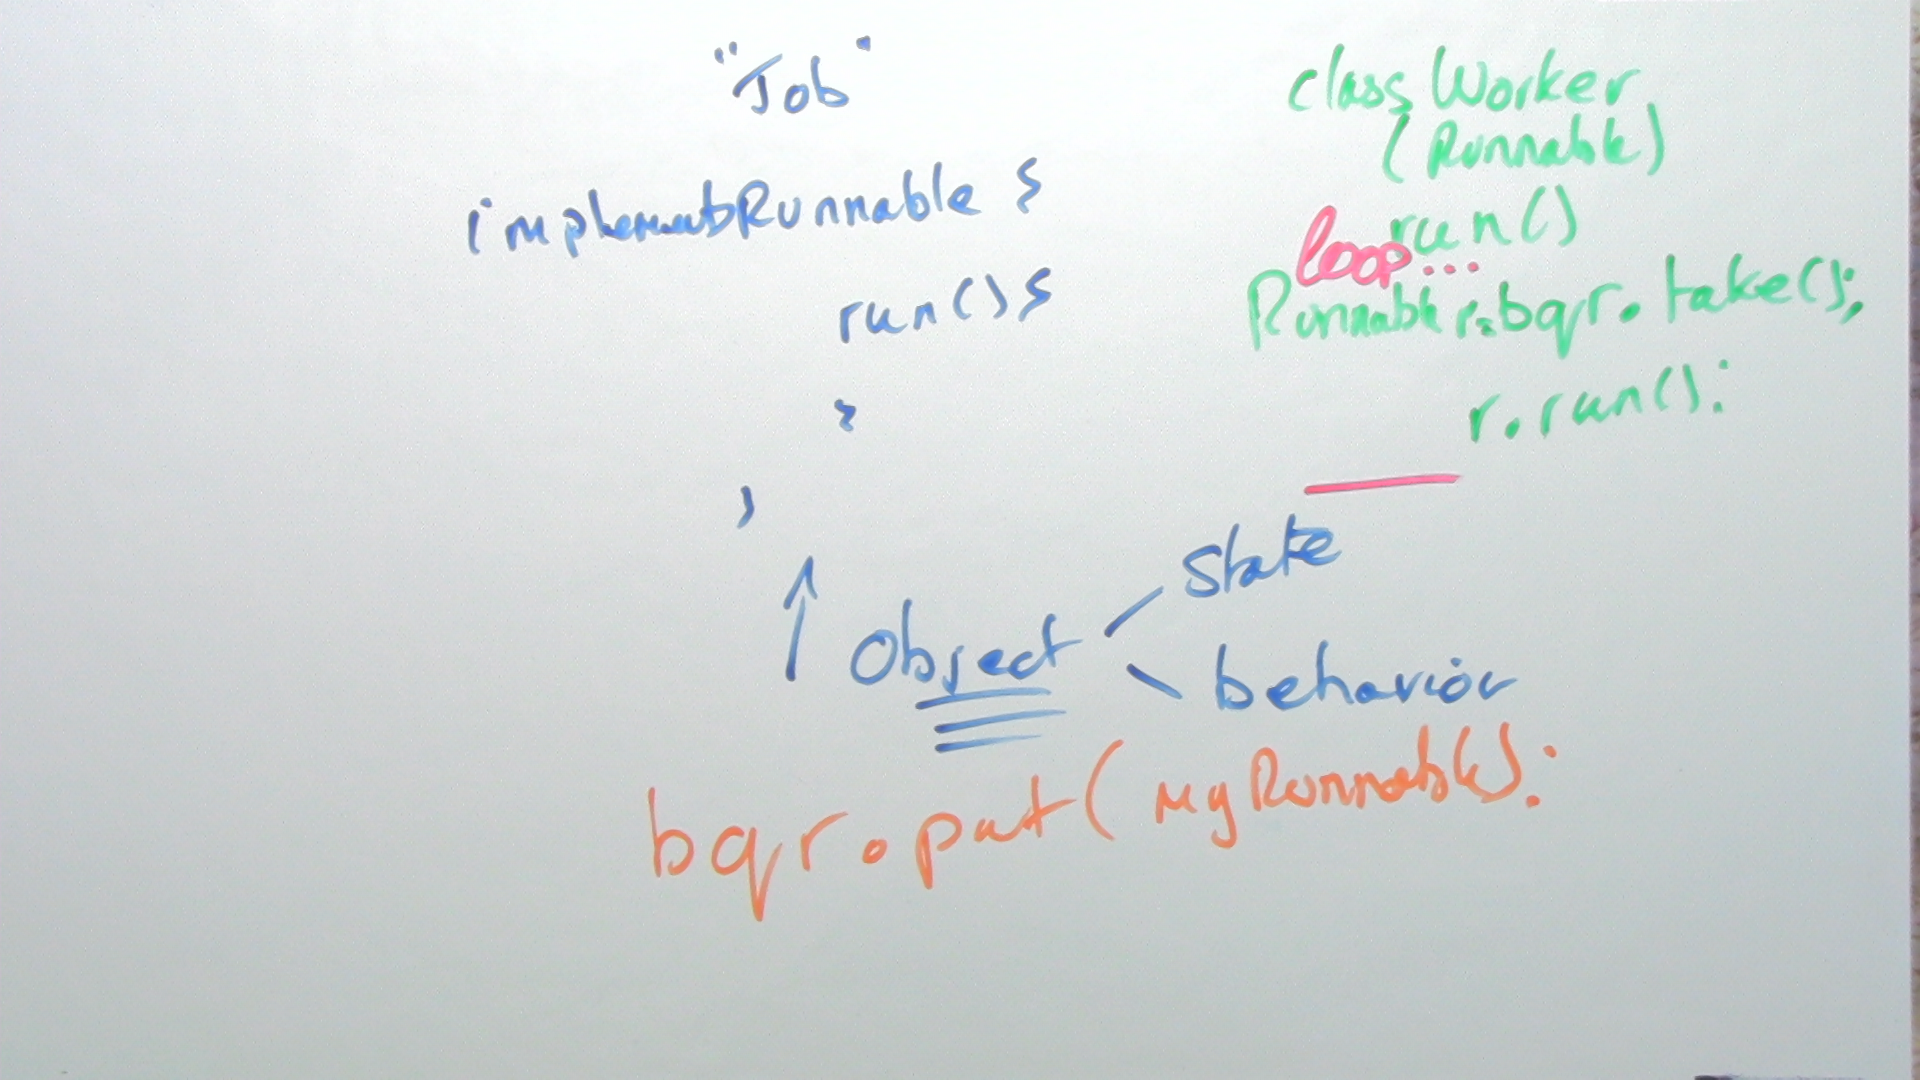 "Job"
implements Runnable {
run() {
}
}
Object
State
behavior
bqr.put(myRunnable);
class Worker
(Runnable)
run()
loop...
Runnable r=bqr.take();
r.run();